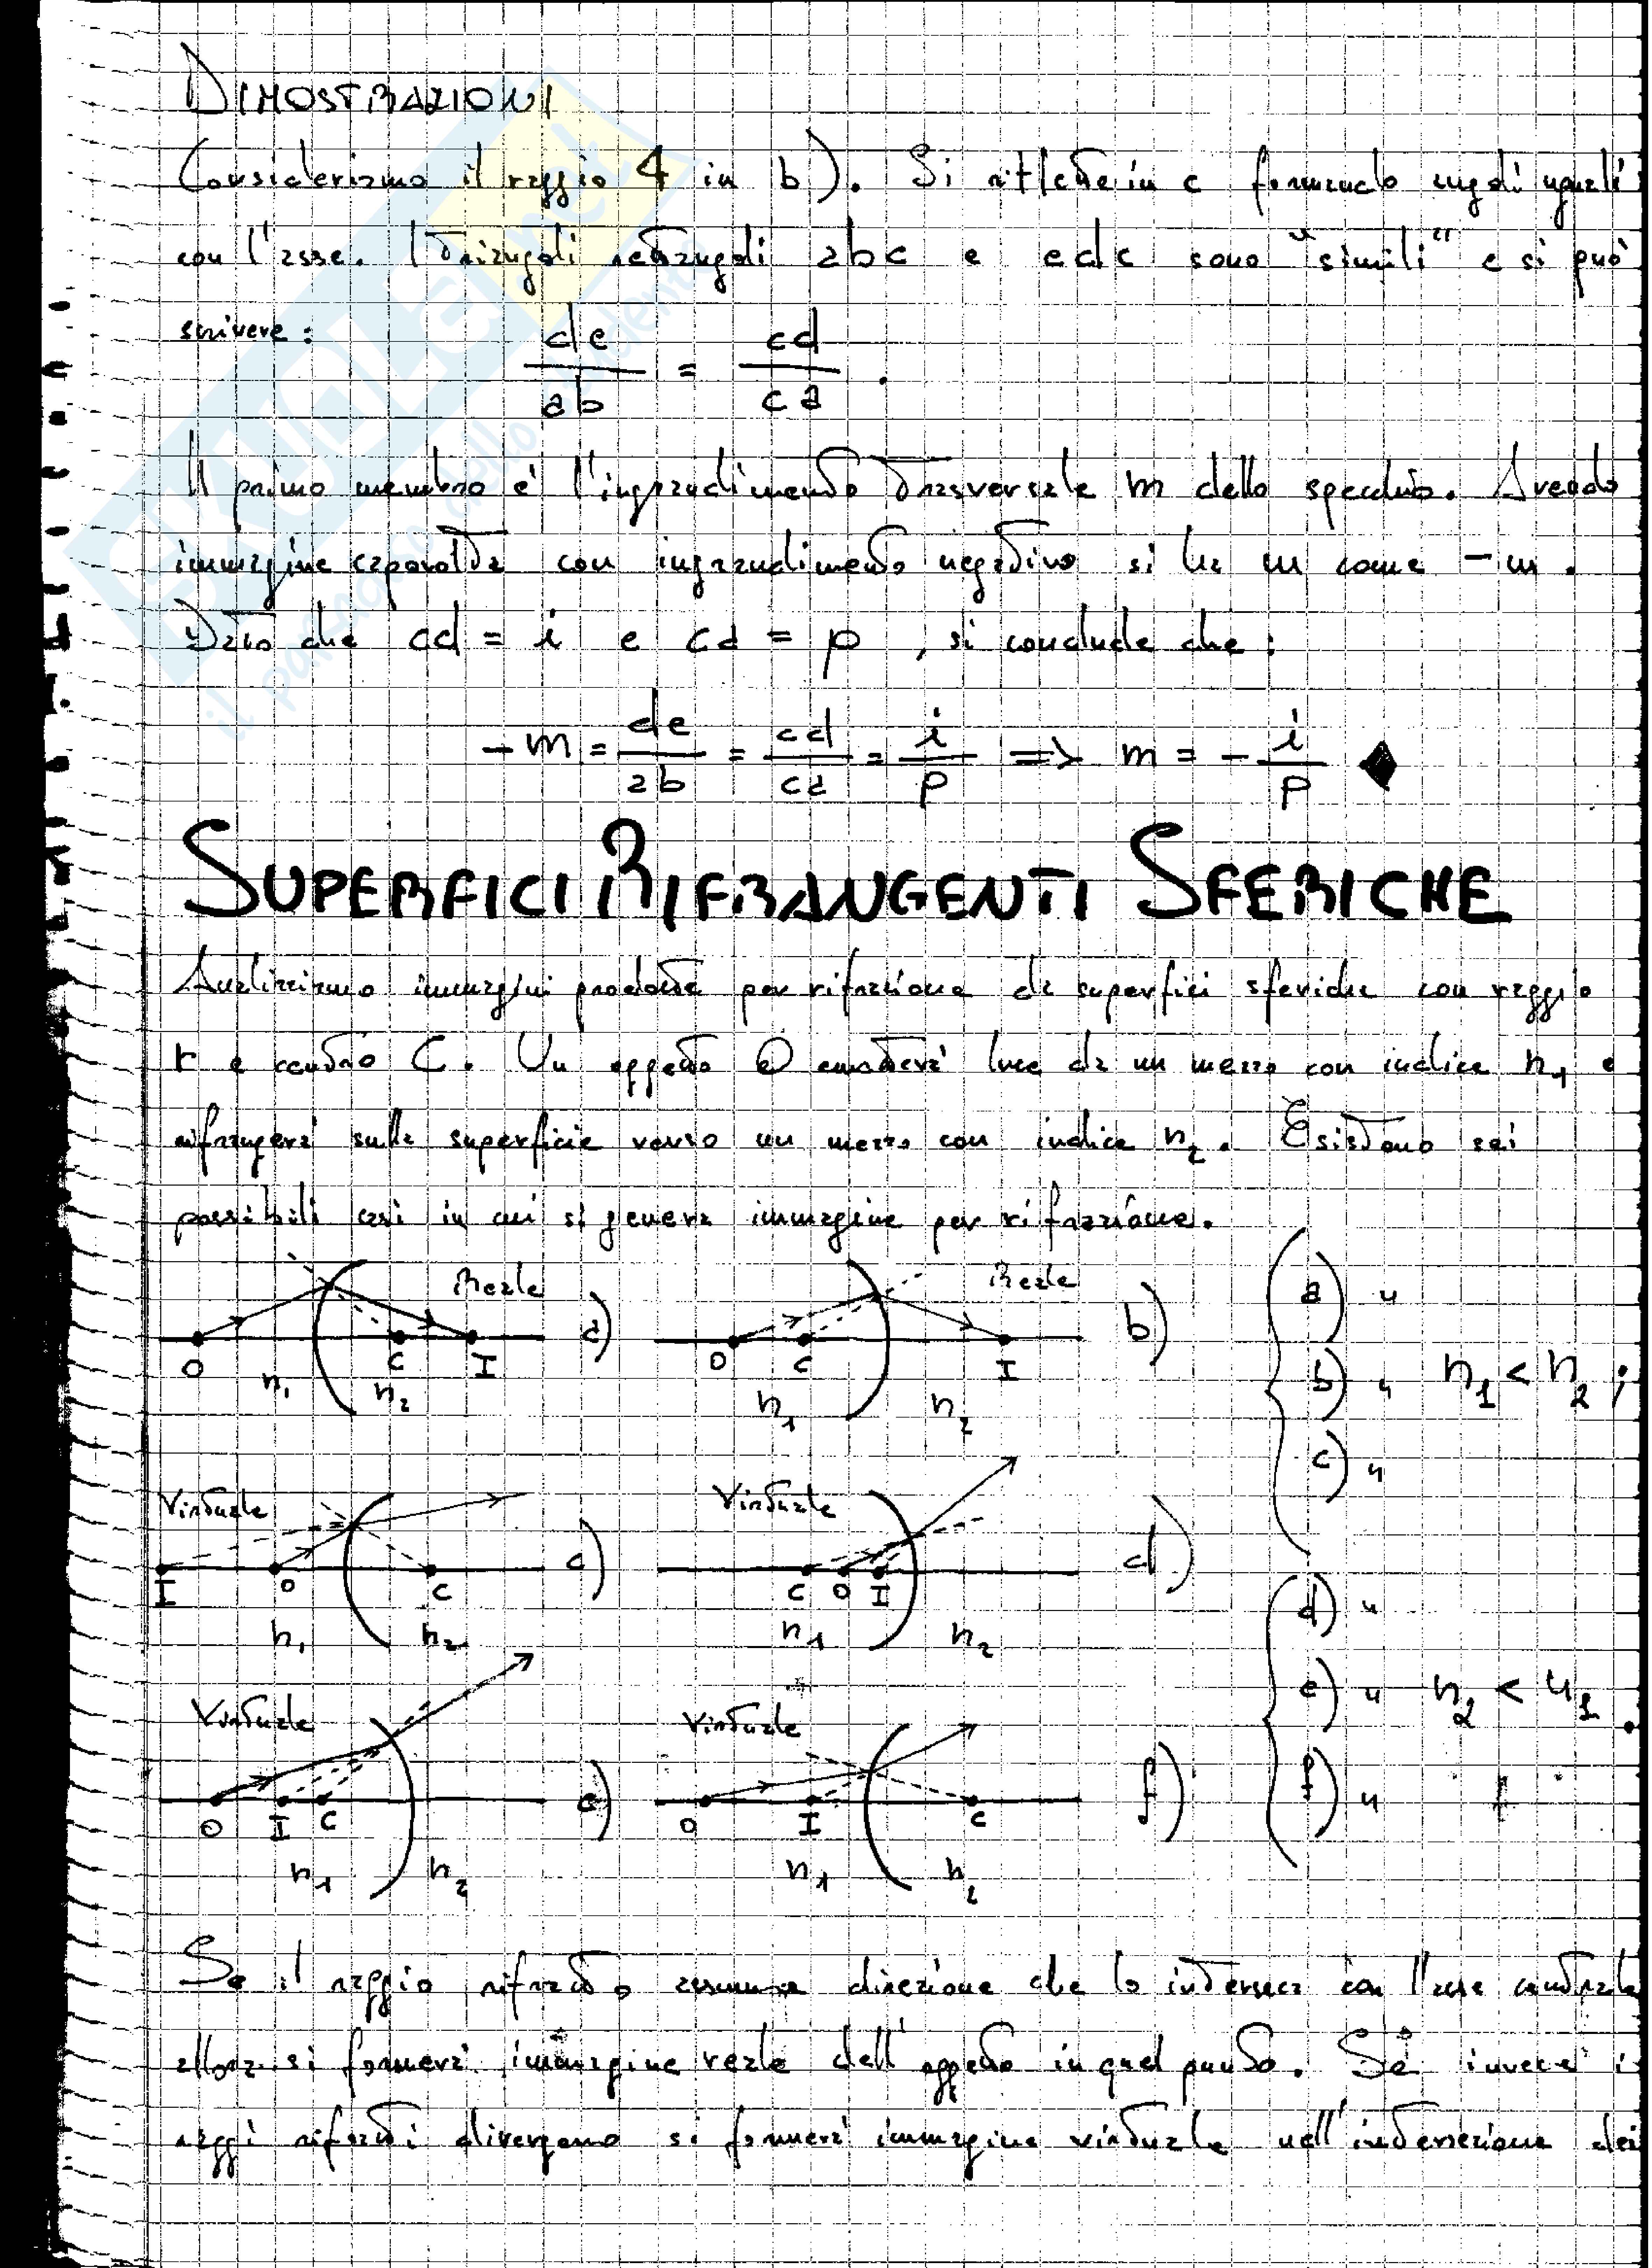 DIMOSTRAZIONI
Consideriamo il raggio 4 in b). Si riflette in c formando angoli uguali
con l'asse. I triangoli rettangoli abc e edc sono "simili" e si può
scrivere: de/ab = cd/ca .
Il primo membro è l'ingrandimento trasversale m dello specchio. Avendo
immagine capovolta con ingrandimento negativo si ha m come -m .
Dato che cd = i e ca = p , si conclude che :
-m = de/ab = cd/ca = i/p => m = - i/p ◆
SUPERFICI RIFRANGENTI SFERICHE
Analizziamo immagini prodotte per rifrazione da superfici sferiche con raggio
r e centro C. Un oggetto O emetterà luce da un mezzo con indice n1 e
rifrangerà sulla superficie verso un mezzo con indice n2. Esistono sei
possibili casi in cui si genera immagine per rifrazione.
Reale a) Reale b) a) "
O C I O C I b) " n1 < n2 ;
n1 n2 n1 n2 c) "
Virtuale c) Virtuale d)
I O C C O I
n1 n2 n1 n2 d) "
Virtuale e) Virtuale f) e) " n2 < n1 .
O I C O I C f) "
n1 n2 n1 n2
Se il raggio rifratto assume direzione che lo interseca con l'asse centrale
allora si formerà immagine reale dell'oggetto in quel punto. Se invece i
raggi rifratti divergono si formerà immagine virtuale nell'intersezione dei
il parco